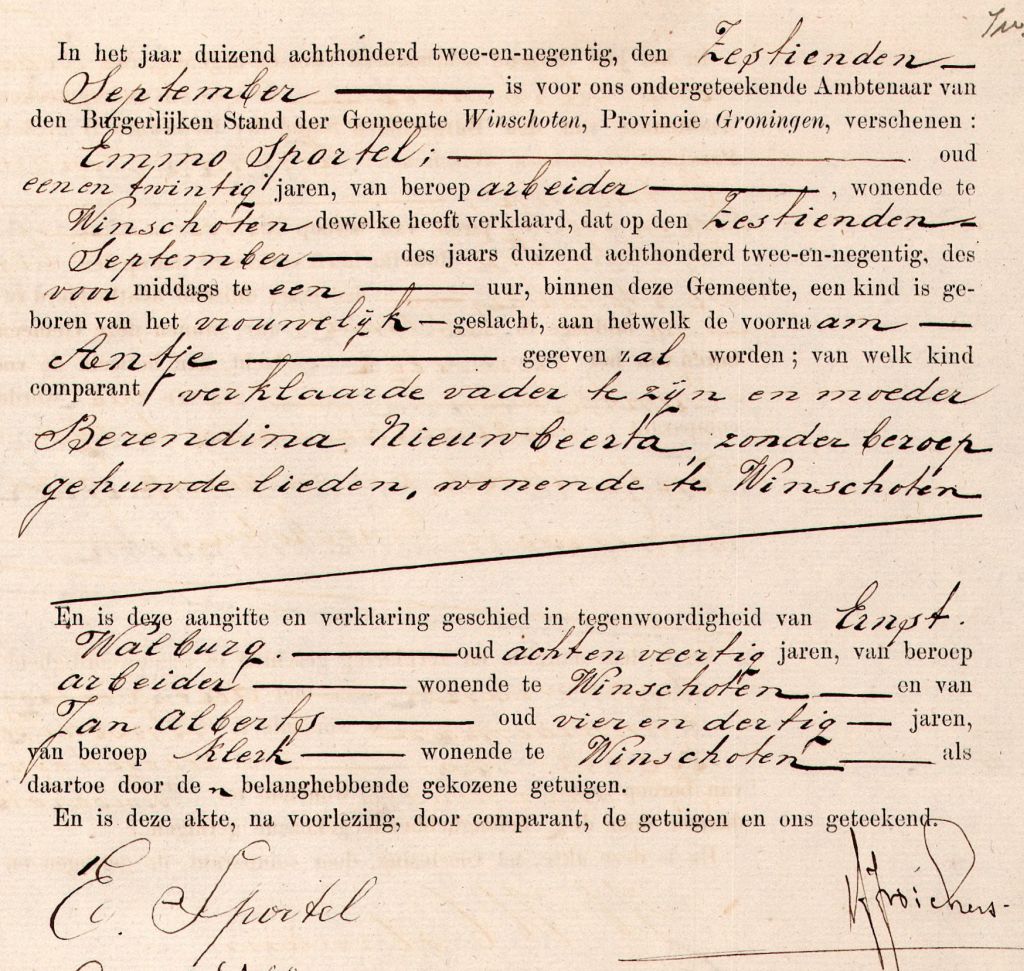 In het jaar duizend achthonderd twee-en-negentig, den Zestienden
September is voor ons ondergeteekende Ambtenaar van
den Burgerlijken Stand der Gemeente Winschoten, Provincie Groningen, verschenen :
Emmo Sportel; oud
een en twintig jaren, van beroep arbeider, wonende te
Winschoten dewelke heeft verklaard, dat op den Zestienden
September des jaars duizend achthonderd twee-en-negentig, des
voor middags te een uur, binnen deze Gemeente, een kind is ge-
boren van het vrouwelijk geslacht, aan hetwelk de voornaam
Antje gegeven zal worden; van welk kind
comparant verklaarde vader te zijn en moeder
Berendina Nieuwbeerta, zonder beroep
gehuwde lieden, wonende te Winschoten
En is deze aangifte en verklaring geschied in tegenwoordigheid van Ernst
Walburg. oud acht en veertig jaren, van beroep
arbeider wonende te Winschoten en van
Jan Alberts oud vier en dertig jaren,
van beroep klerk wonende te Winschoten als
daartoe door den belanghebbende gekozene getuigen.
En is deze akte, na voorlezing, door comparant, de getuigen en ons geteekend.
E. Sportel